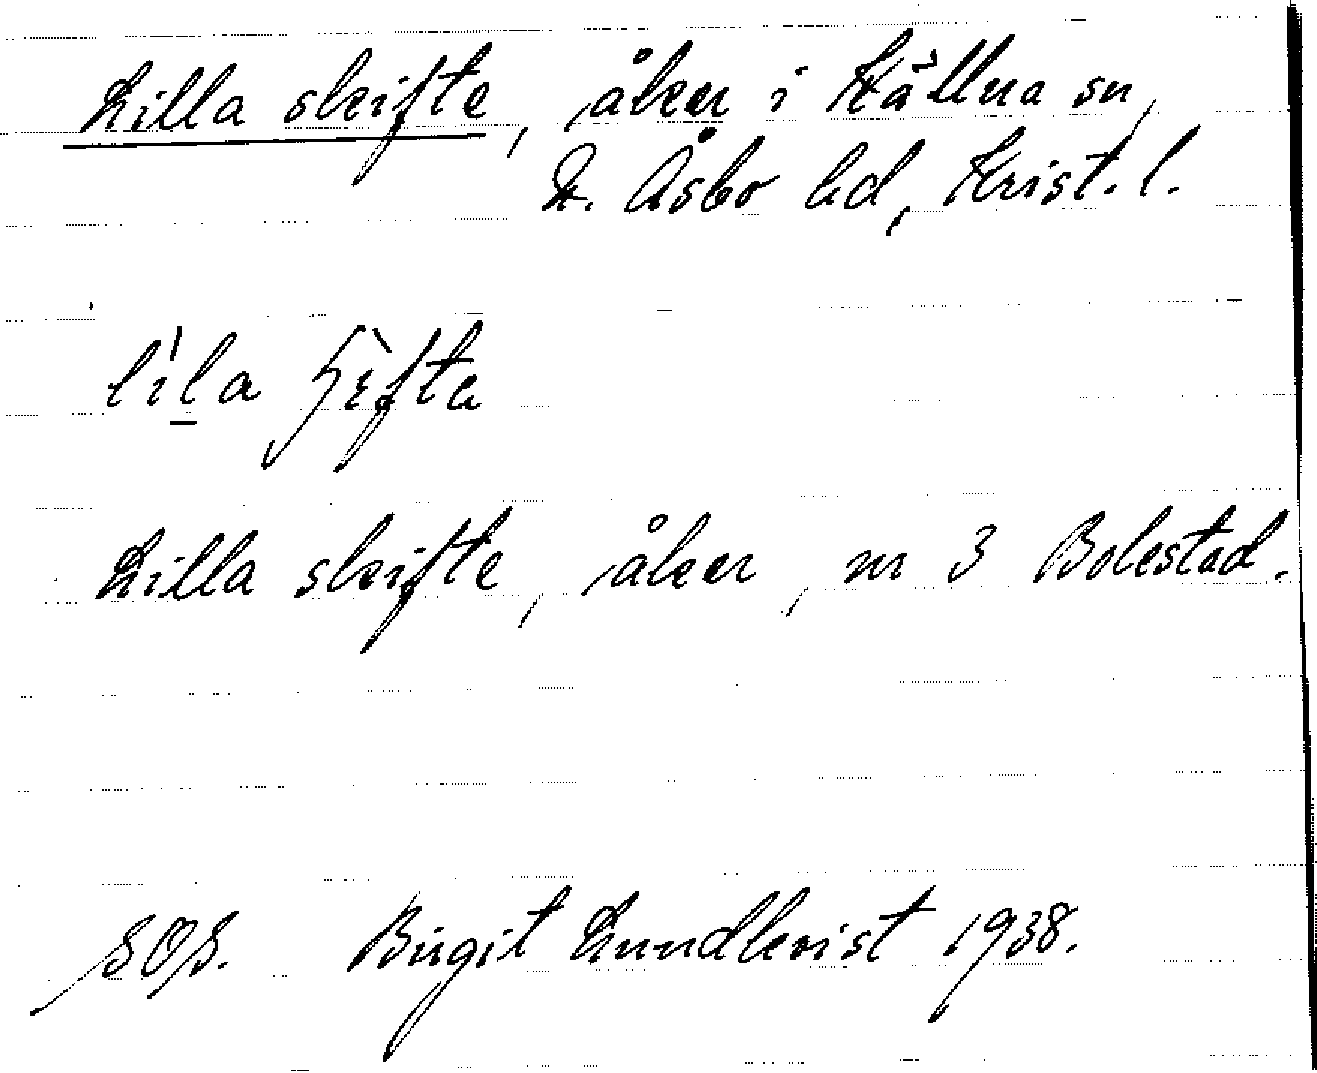 Lilla skifte, åker i Källna sn,
N. Åsbo hd, Krist. l.
Lilla skifte, åker, nr 3 Bolestad.
SOS. Birgit Lundkvist 1938.